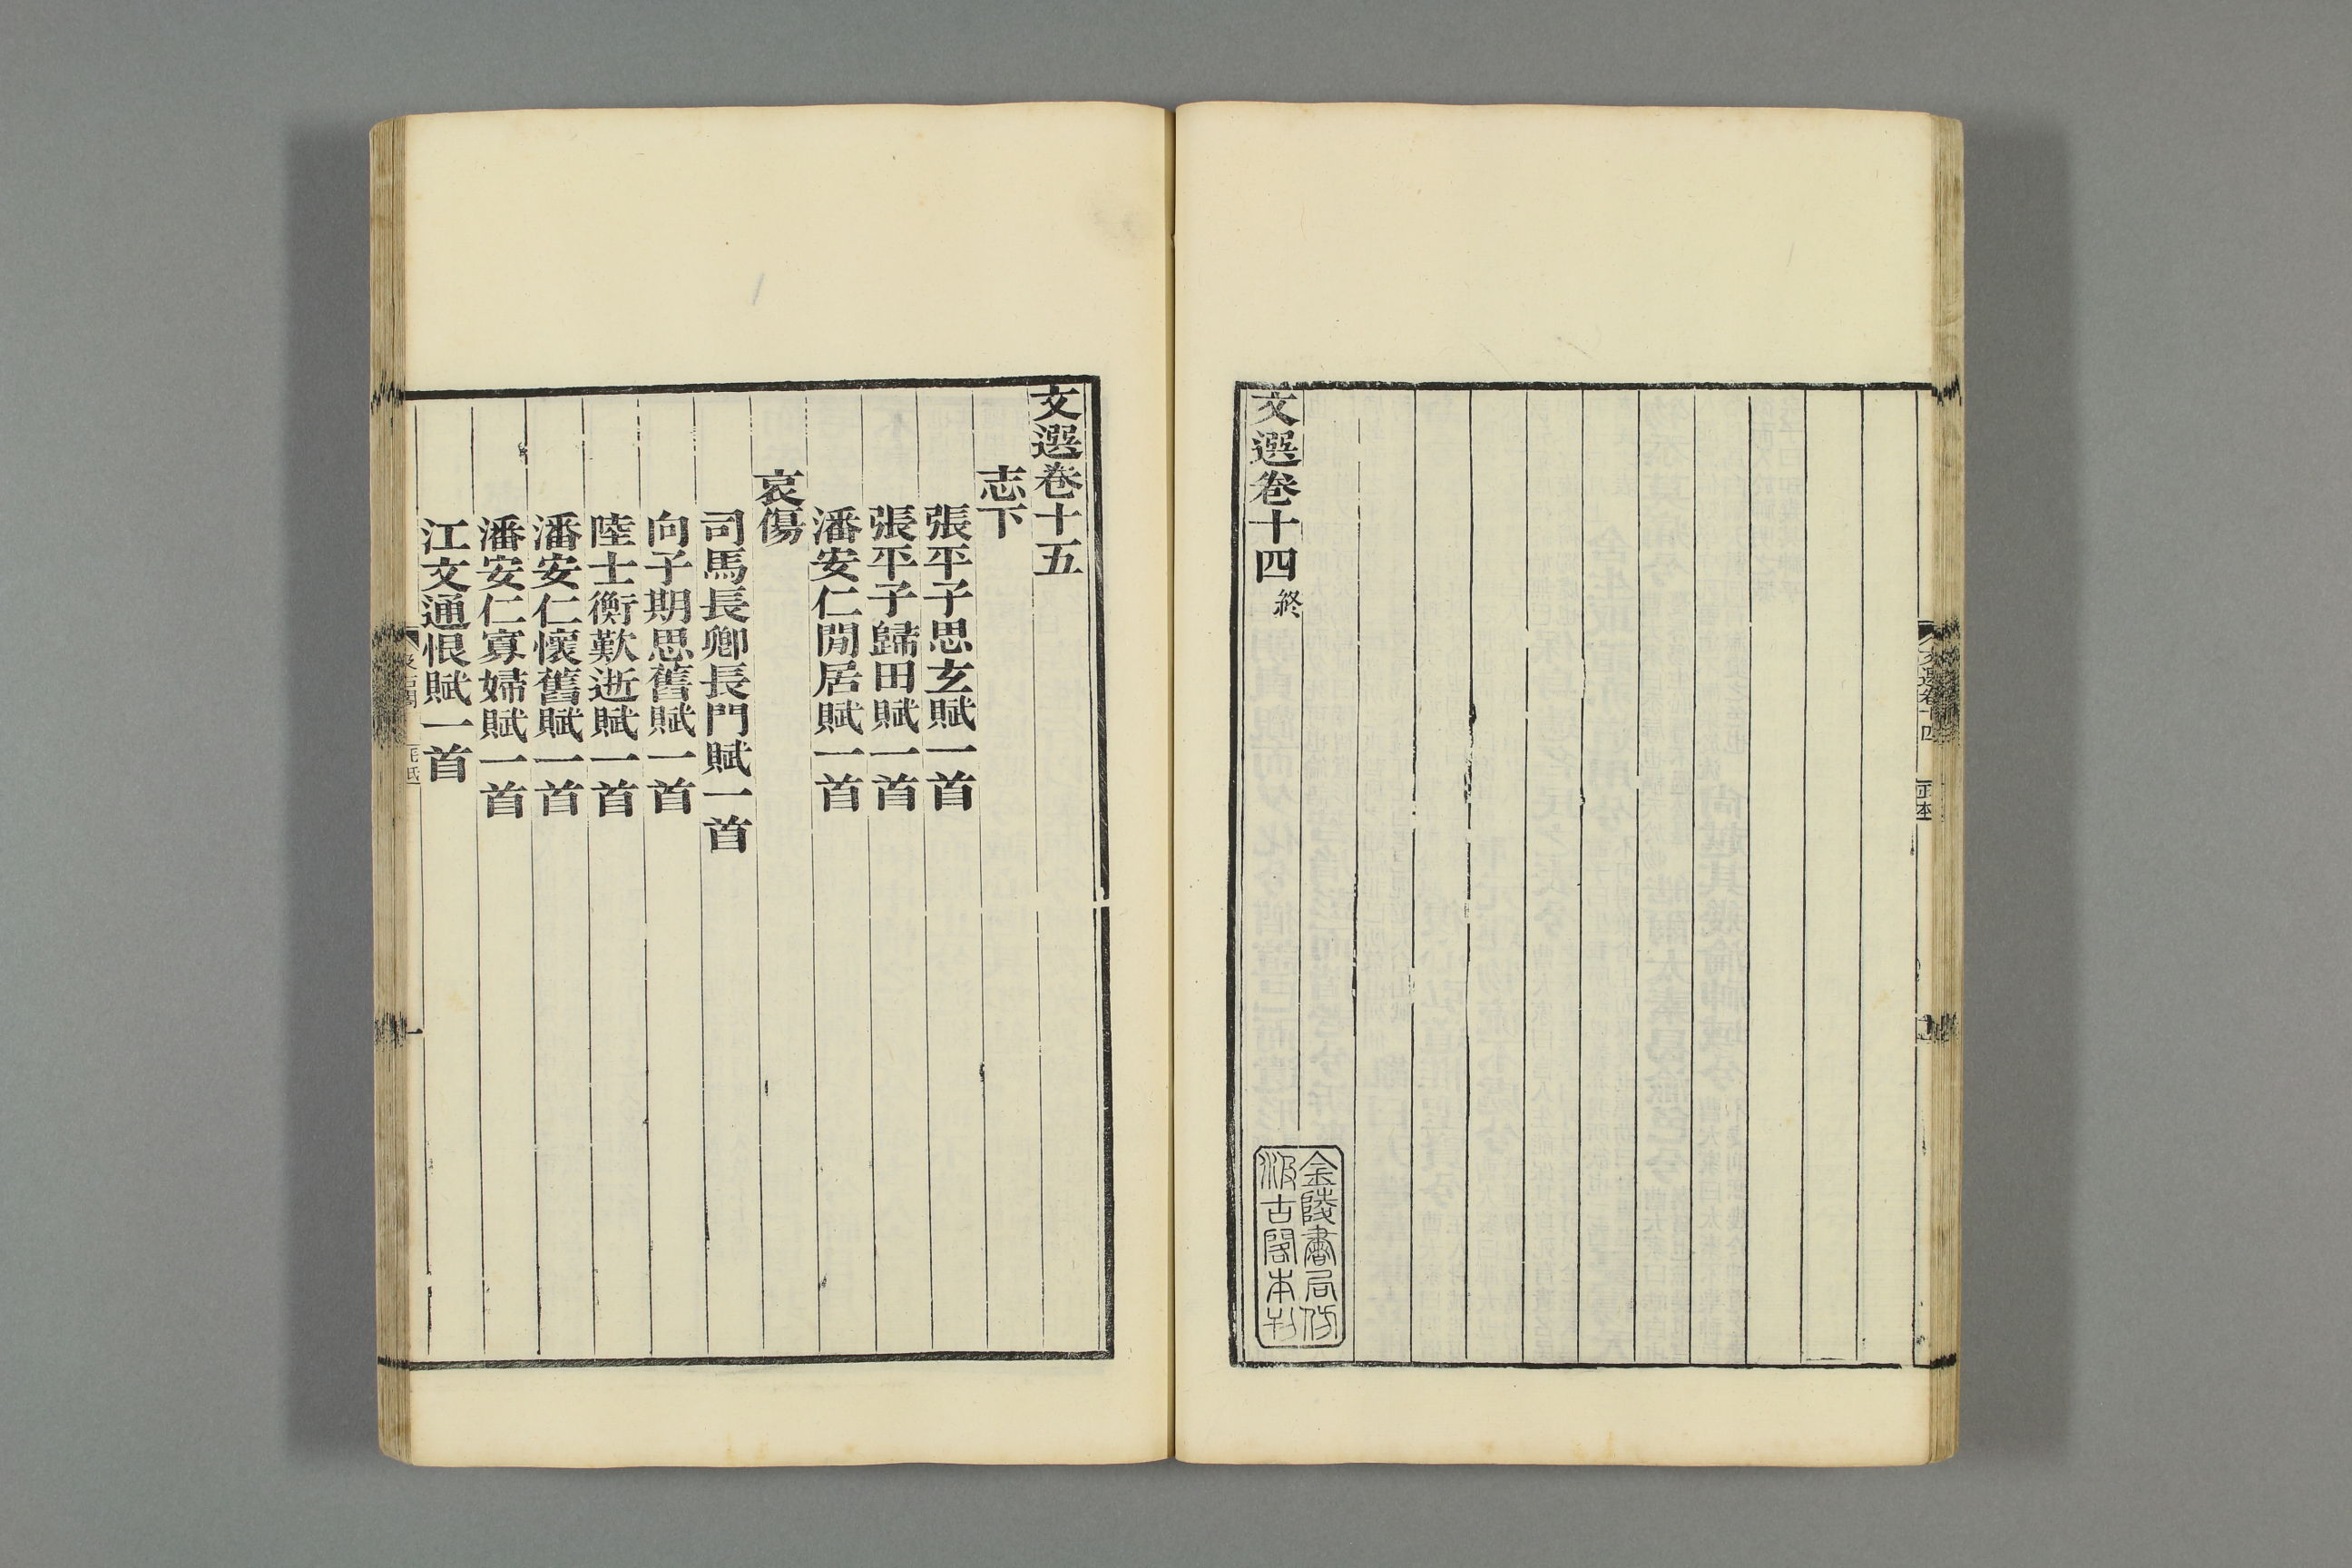 文選卷十四終
金陵書局仿
汲古閣本刊
文選卷十五
志下
張平子思玄賦一首
張平子歸田賦一首
潘安仁閒居賦一首
哀傷
司馬長卿長門賦一首
向子期思舊賦一首
陸士衡歎逝賦一首
潘安仁懷舊賦一首
潘安仁寡婦賦一首
江文通恨賦一首